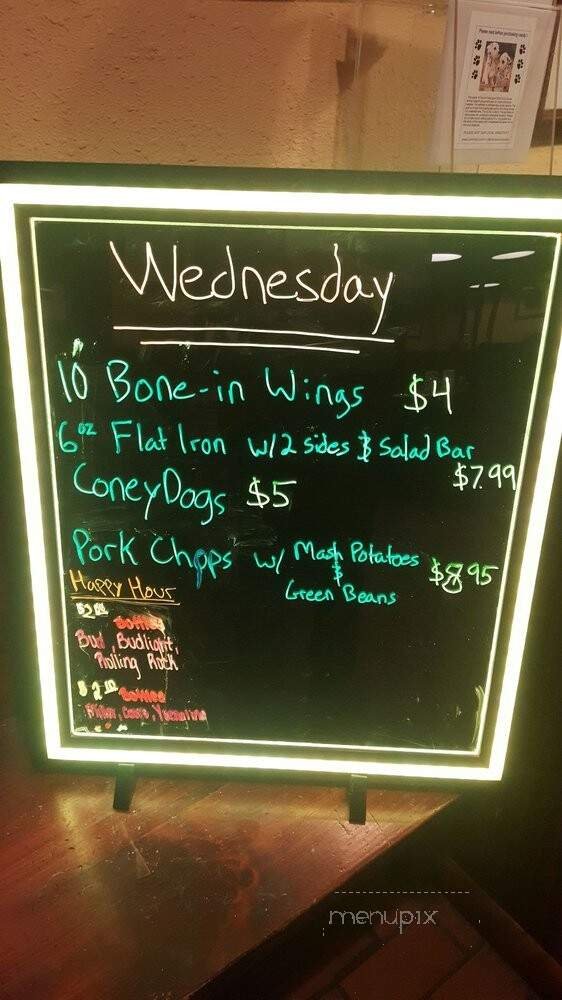 Please read before purchasing candy!
Wednesday
10 Bone-in Wings $4
6oz Flat Iron w/2 sides & Salad Bar
$7.99
Coney Dogs $5
Pork Chops w/ Mash Potatoes
&
Green Beans
$8.95
Happy Hour
$2.00
Bottles
Bud, Budlight,
Rolling Rock
Bottles
menupix